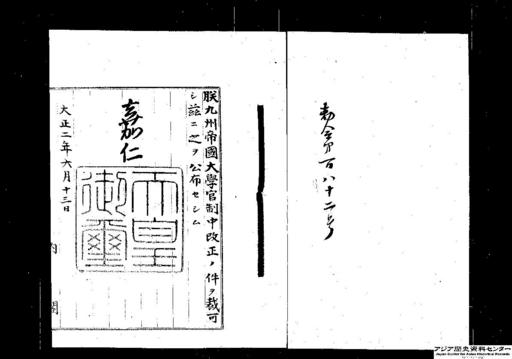 勅令第百八十二号
朕九州帝國大學官制中改正ノ件ヲ裁可
シ茲ニ之ヲ公布セシム
嘉仁
天皇御璽
大正二年六月十三日
内閣
アジア歴史資料センター
Japan Center for Asian Historical Records